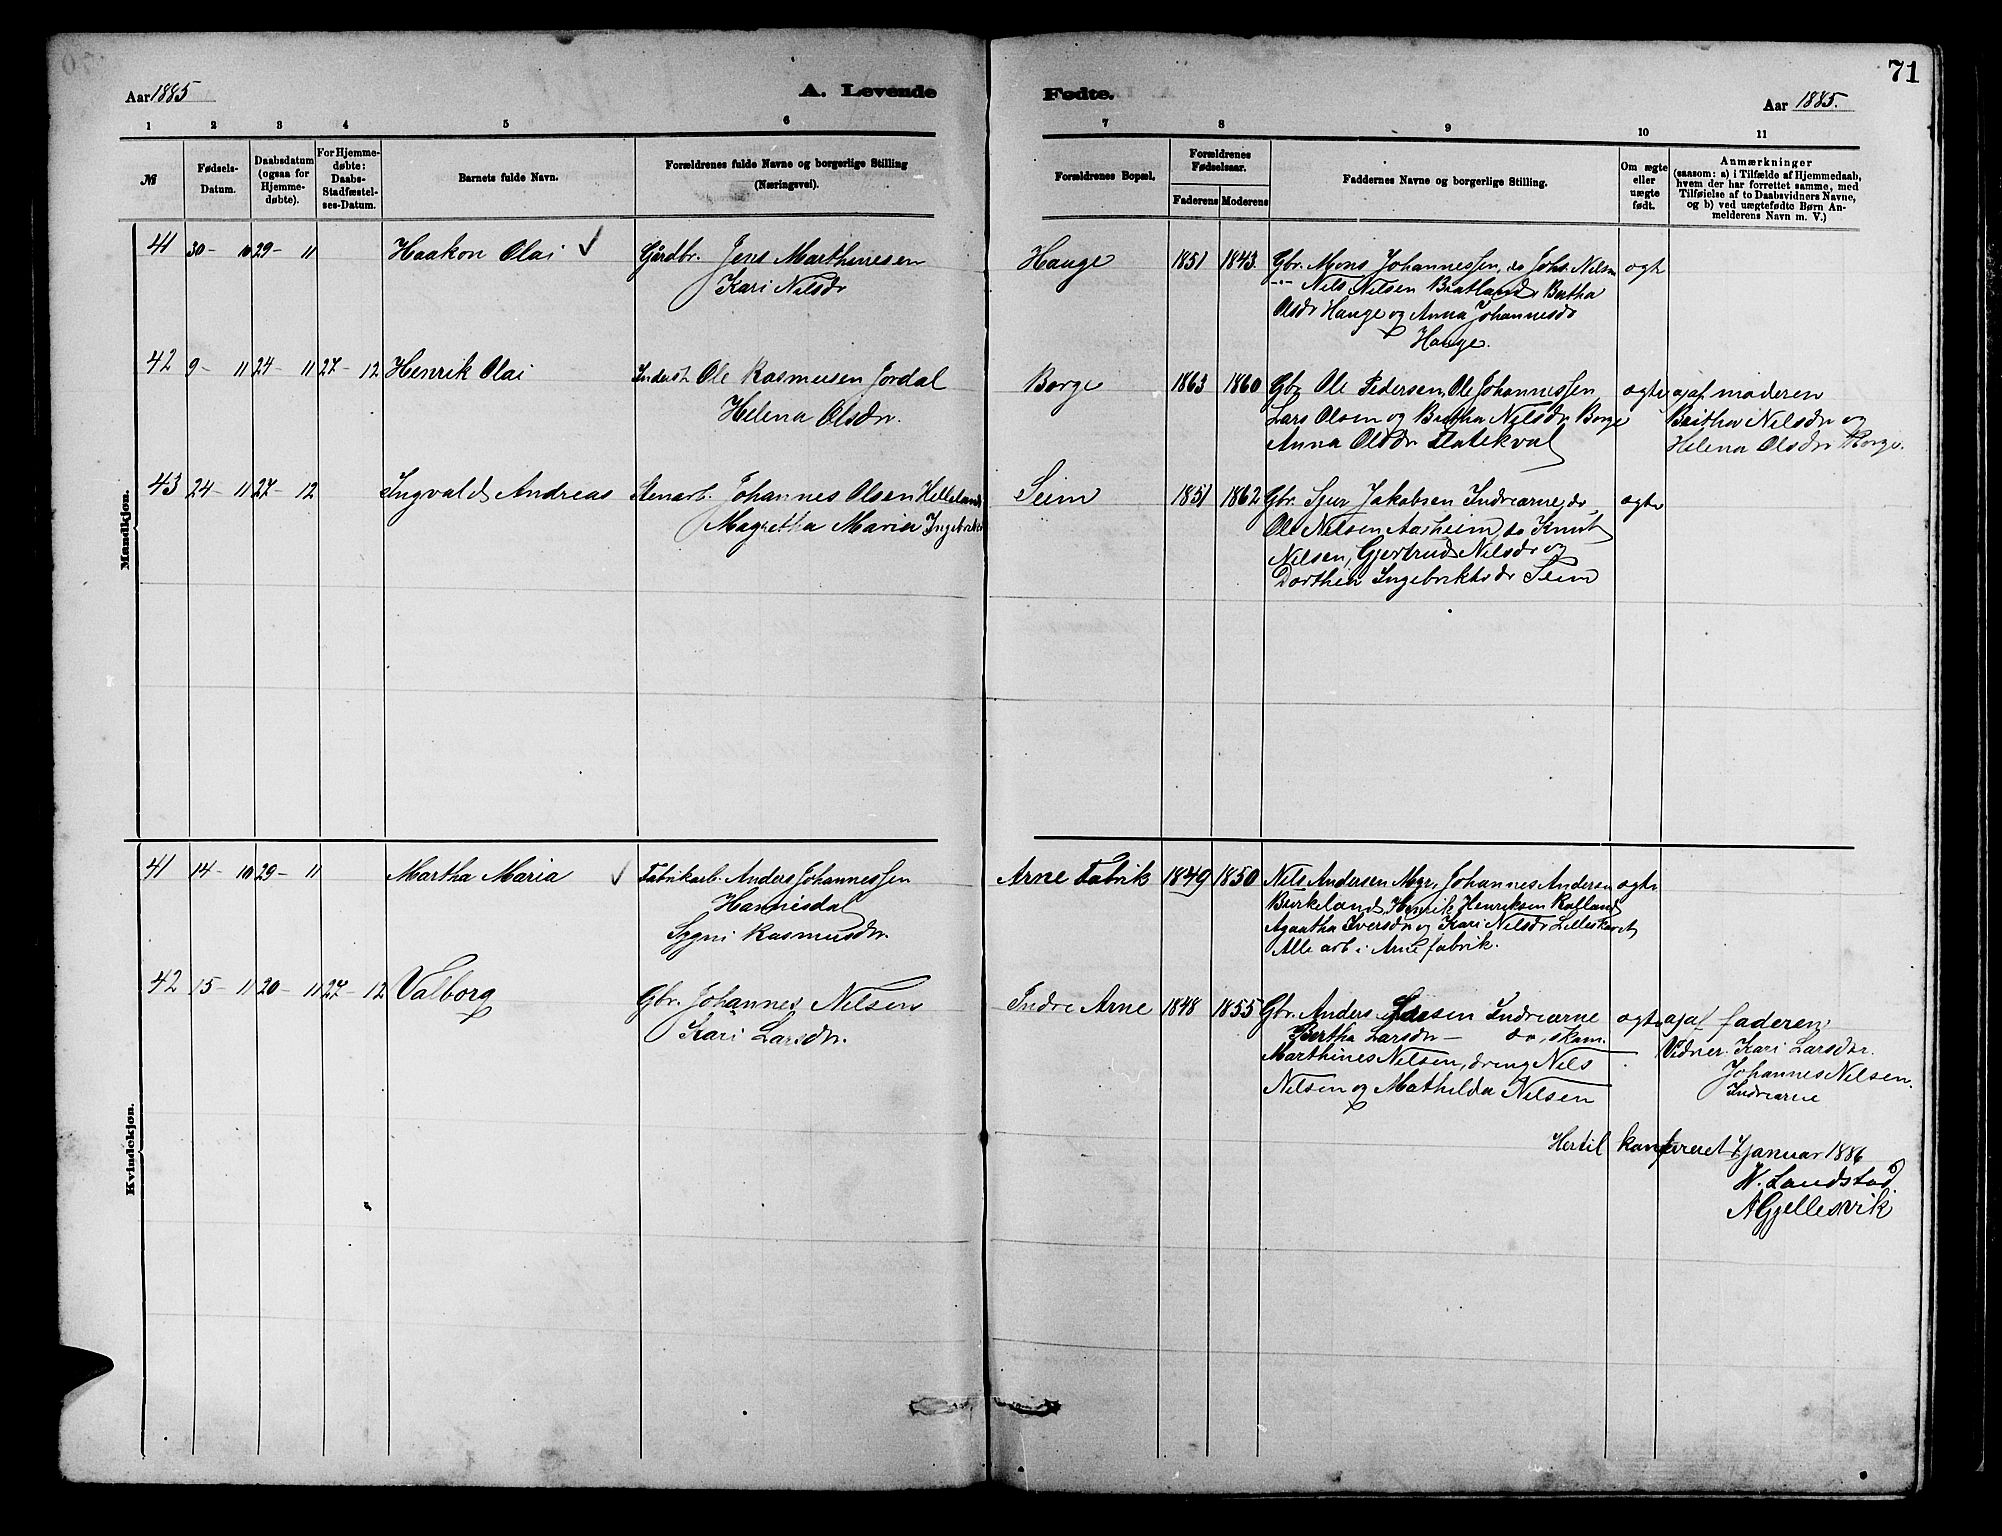 71
Aar 1885
A. Levende
Fødte.
Aar 1885.
1 2 3 4 5 6 7 8 9 10 11
№
Fødsels-
Datum.
Daabsdatum
(ogsaa for
Hjemme-
døbte).
For Hjemme-
døbte:
Daabs-
Stadfæstel-
ses-Datum.
Barnets fulde Navn.
Forældrenes fulde Navne og borgerlige Stilling
(Næringsvei).
Forældrenes Bopæl.
Forældrenes
Fødselsaar.
Faderens Moderens
Faddernes Navne og borgerlige Stilling.
Om ægte
eller
uægte
født.
Anmærkninger
(saasom: a) i Tilfælde af Hjemmedaab,
hvem der har forrettet samme, med
Tilføielse af to Daabsvidners Navne,
og b) ved uægtefødte Børn An-
melderens Navn m. V.)
Mandkjøn.
41 30- 10 29- 11 Haakon Olai ✓
Gårdbr. Jens Marthinesen
Kari Nilsdr
Hauge 1851 1843.
Gbr. Mons Johannessen, do Johs. Nilsen
-"- Nils Nilsen Bratland, Bertha
Olsdr Hauge og Anna Johannesdr
Hauge.
ægte
42 9- 11 24- 11 27- 12 Henrik Olai
Inderst Ole Rasmusen Jordal
Helena Olsdr.
Borge 1863 1860
Gbr Ole Pedersen, Ole Johannessen,
Lars Olsen og Britha Nilsdr Borge
Anna Olsdr Flatekval
ægte
af moderen
Britha Nilsdr og
Helena Olsdr Borge.
43 24- 11 27- 12 Ingvald Andreas
Stenarb. Johannes Olsen Helleland
Magretha Maria
Seim 1851 1862
Gbr. Sjur Jakobsen Indrearne, do,
Ole Nilsen Aarheim, do Knut
Nilsen, Gjertrud Nilsdr og
Dorthea Ingebriktsdr Seim
ægte
Kvindekjøn.
41 14- 10 29- 11 Martha Maria ✓
Fabrikarb. Anders Johannessen
Hannisdal
Sygni Rasmusdr.
Arne Fabrik 1849 1850
Nils Andersen Mgr, Johannes Andersen
Birkeland, Henrik Henriksen Kalland
Agaatha Iversdr og Kari Nilsdr Lilleskaret
Alle arb i Arne fabrik.
ægte
42 15- 11 20- 11 27- 12 Valborg
Gbr. Johannes Nilsen
Kari Larsdr.
Indre Arne 1848 1855
Gbr. Anders Larsen Indrearne
Bertha Larsdr — do, skom.
Marthines Nilsen, dreng Nils
Nilsen og Mathilda Nilsen
ægte
af faderen
Vidner. Kari Larsdr.
Johannes Nilsen.
Indrearne
Hertil konfereret januar 1886
W. Landstad
A Gjellesvik